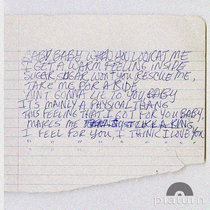 BABY BABY WHEN YOU LOOK AT ME
I GET A WARM FEELING INSIDE
SUGAR SUGAR WON'T YOU RESCUE ME,
TAKE ME FOR A RIDE
AINT GONNA LIE TO YOU BABY
ITS MAINLY A PHYSICAL THANG
THIS FEELING THAT I GOT FOR YOU BABY.
MAKES ME JUST LIKE A KING
I FEEL FOR YOU, I THINK I LOVE YOU
platurn